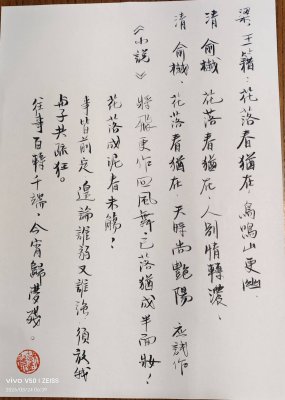 梁 王籍：花落春猶在，鳥鳴山更幽。
清 俞樾 花落春猶在，人別情轉濃，
清 俞樾：花落春猶在，天時尚艷陽 應試作
《小說》 將飛更作回風舞，已落猶成半面妝！
花落成泥香未觴！
事皆前定 遑論誰弱又誰強 須放我
些子共酥狂。
往事百轉千端，今宵歸夢殘。
vivo V60 | ZEISS